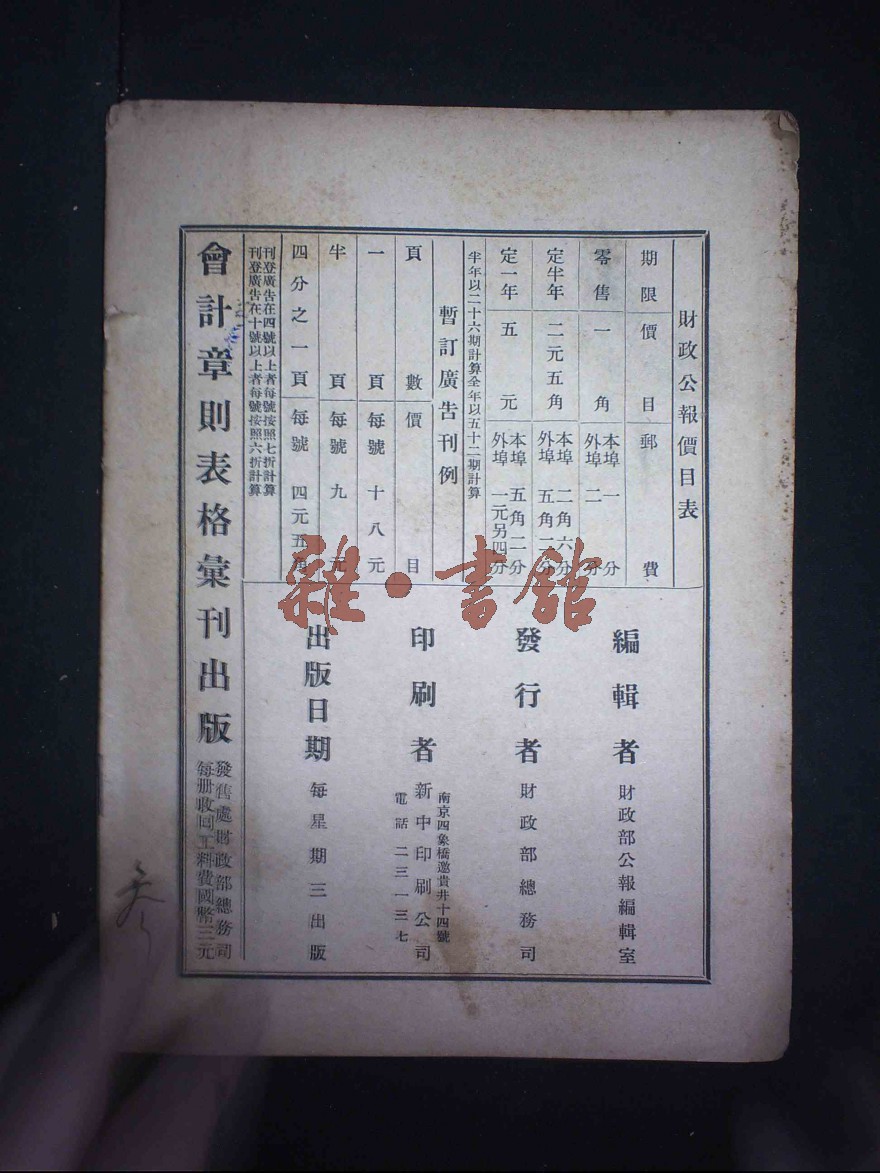 財政公報價目表
期限 價目 郵費
零售 一角 本埠 一分 外埠 二分
定半年 二元五角 本埠 二角六分 外埠 五角二分
定一年 五元 本埠 五角二分 外埠 一元另四分
半年以二十六期計算全年以五十二期計算
暫訂廣告刊例
頁數 價目
一頁 每號 十八元
半頁 每號 九元
四分之一頁 每號 四元五角
刊登廣告在四號以上者每號按照七折計算
刊登廣告在十號以上者每號按照六折計算
編輯者 財政部公報編輯室
發行者 財政部總務司
印刷者 新中印刷公司
南京四象橋邀貴井十四號
電話 二三一三七
出版日期 每星期三出版
會計章則表格彙刊出版
發售處財政部總務司
每册收回工料費國幣三元
雜·書館